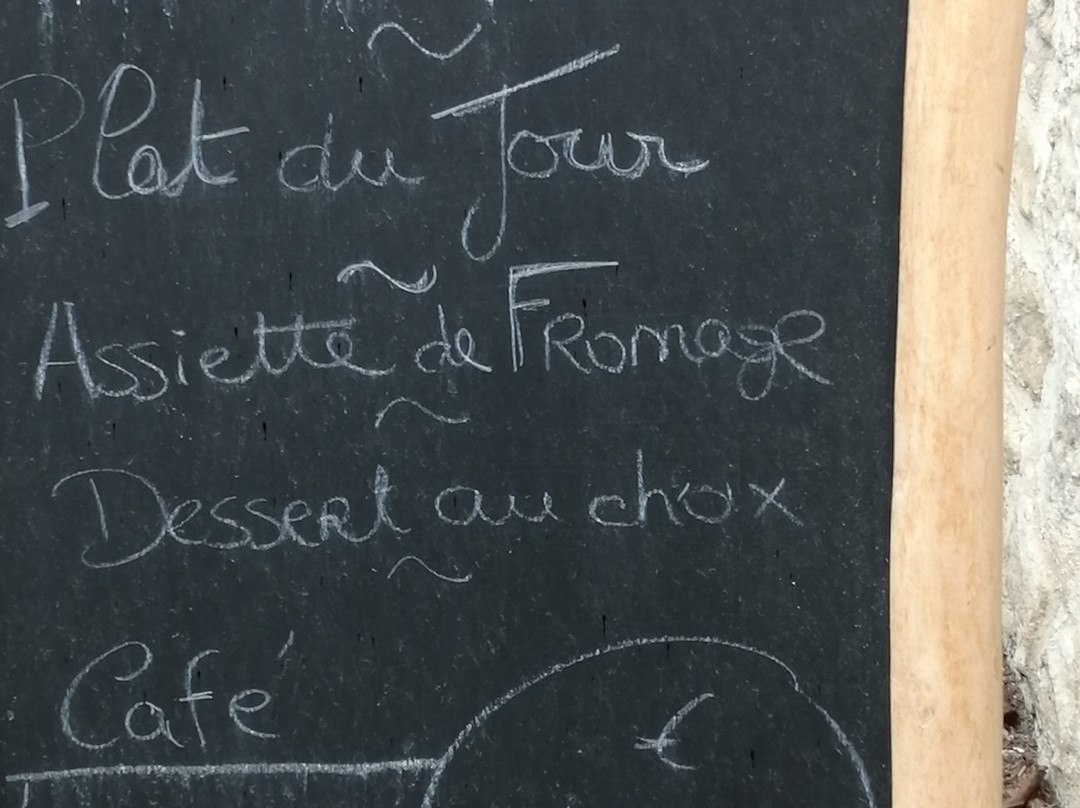 Plat du Jour
~
Assiette de Fromage
~
Dessert au choix
~
Café
€